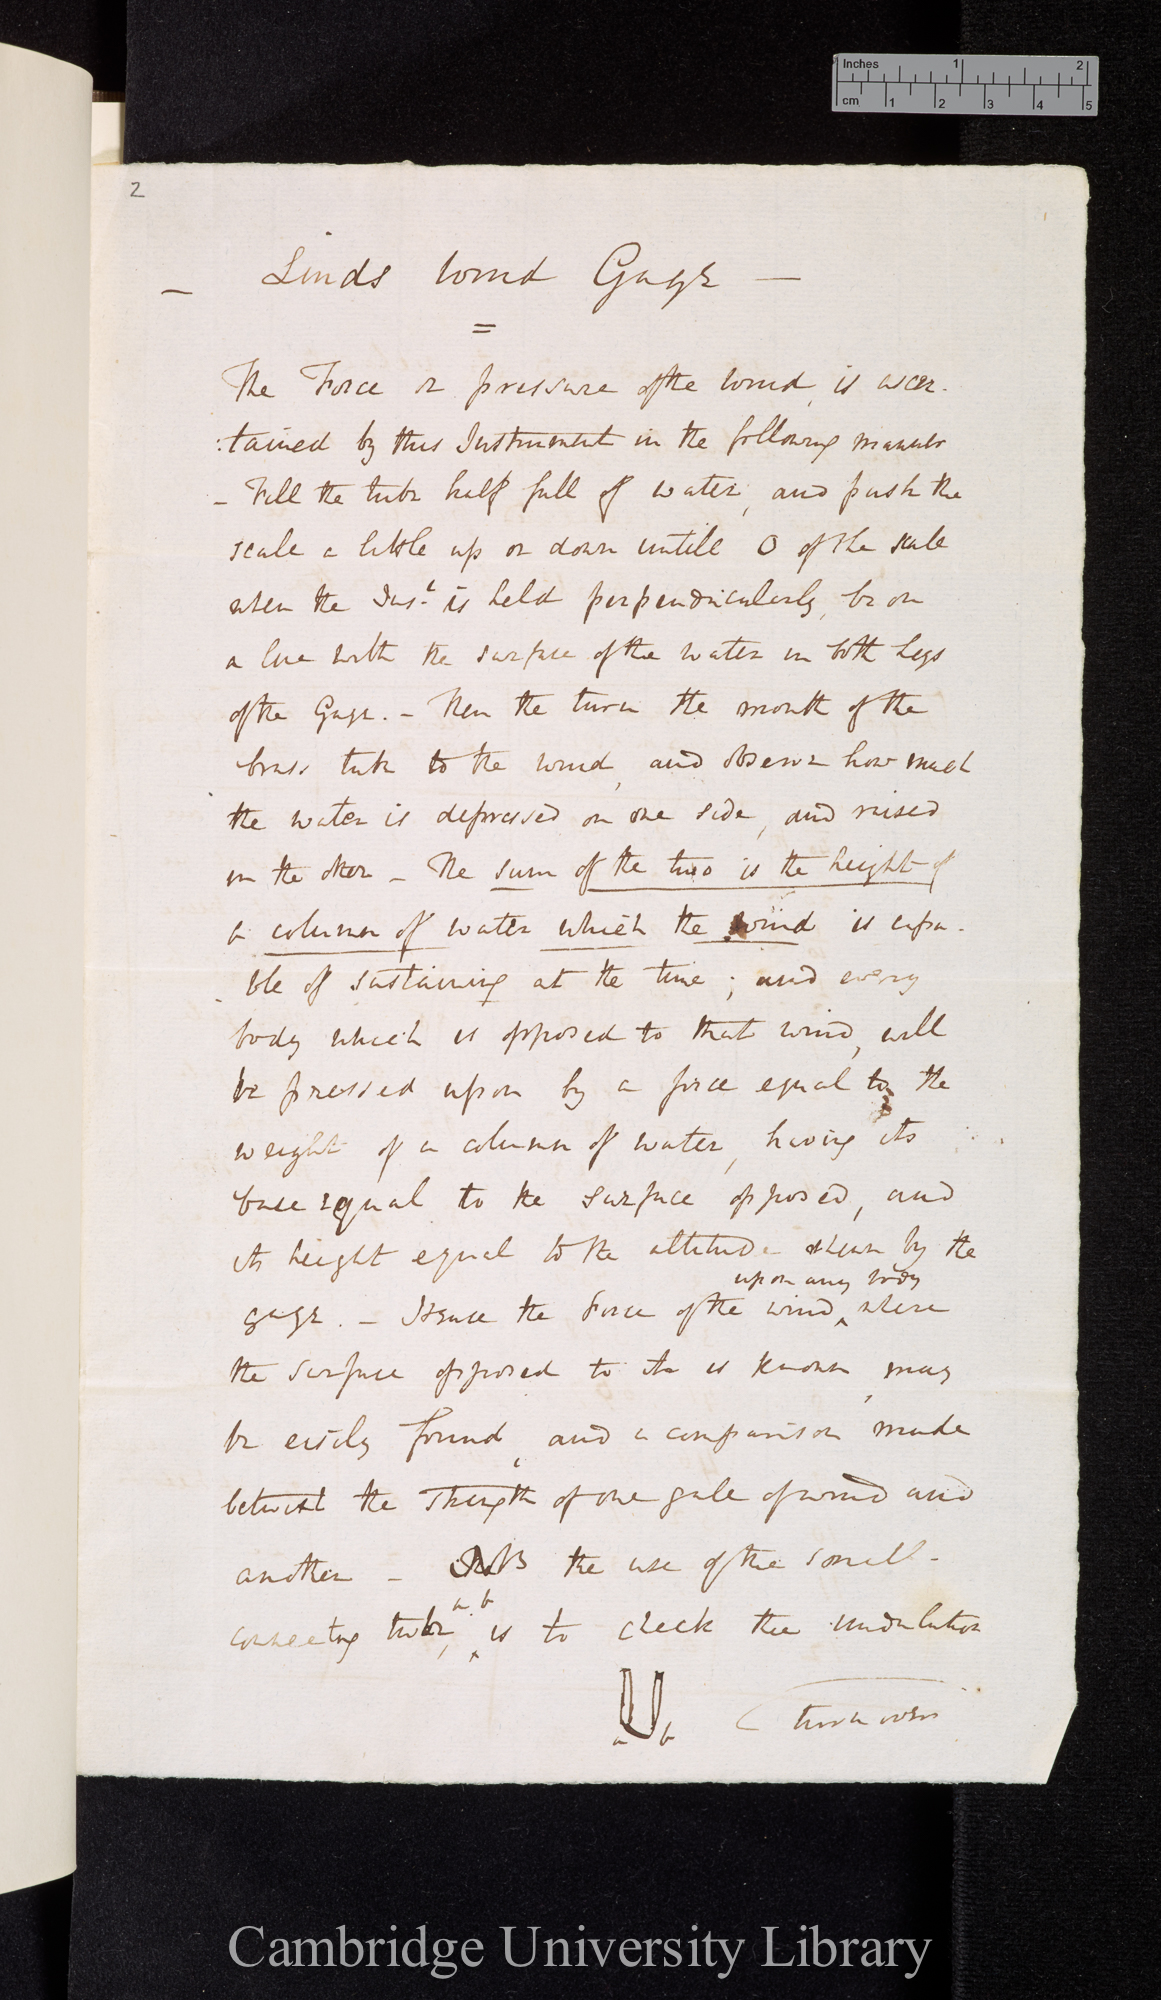 Inches 1 2
cm 1 2 3 4 5
2
– Linds wind Gage –
=
The Force or pressure of the wind, is ascer-
:tained by this Instrument in the following manner
– Fill the tube half full of water, and push the
scale a little up or down untill 0 of the scale
when the Inst. is held perpendicularly, be on
a line with the surface of the water in both Legs
of the Gage. – Then the turn the mouth of the
brass tube to the wind, and observe how much
the water is depressed on one side, and raised
in the other – The sum of the two is the height of
a column of water which the wind is capa-
ble of sustaining at the time ; and every
body which is opposed to that wind, will
be pressed upon by a force equal to the
weight of a column of water, having its
base equal to the surface opposed, and
its height equal to the altitude shewn by the
upon any body
gage. – Hence the Force of the wind ‸ where
the surface opposed to it is known, may
be easily found, and a comparison made
betwixt the strength of one gale of wind and
another – NB the use of the small-
a. b
connecting tube, ‸ is to check the undulation
a b
( turn over
Cambridge University Library